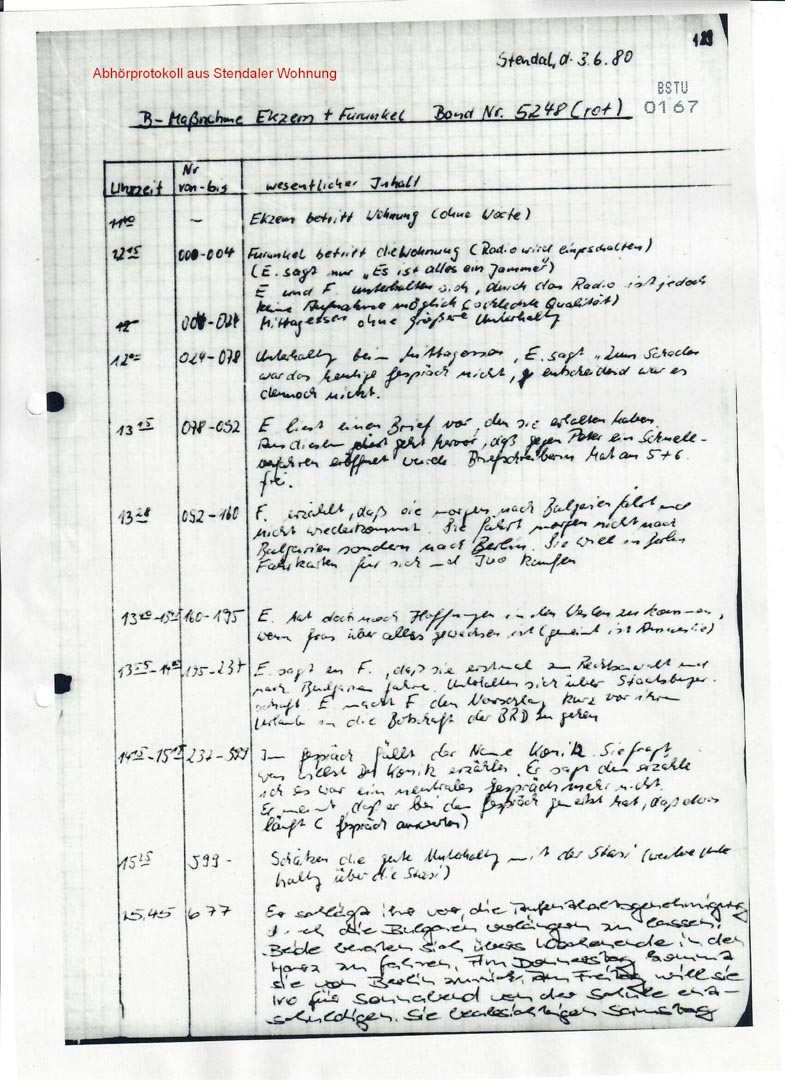 123
Stendal, d. 3.6.80
Abhörprotokoll aus Stendaler Wohnung
BSTU
0167
B-Maßnahme Ekzem + Furunkel Band Nr. 5248 (rot)
Uhrzeit Nr von-bis wesentlicher Inhalt
– Ekzem betritt Wohnung (ohne Worte)
12 15 000-004 Furunkel betritt die Wohnung (Radio wird eingeschalten)
(E. sagt nur „Es ist alles ein Jammer")
E und F. unterhalten sich, durch das Radio ist jedoch
keine Aufnahme möglich (schlechte Qualität)
Mittagessen ohne größere Unterhaltg
024-078 Unterhaltg beim Mittagessen, E. sagt „Zum Schaden
war das heutige Gespräch nicht, entscheidend war es
dennoch nicht.
13 15 078-092 E liest einen Brief vor, den sie erhalten haben.
Aus diesem geht hervor, daß gegen Peter ein Schnell-
verfahren eröffnet wurde. Briefschreiberin hat am 5+6.
frei.
13 28 092-160 F. erzählt, daß sie morgen nach Bulgarien fährt und
nicht wiederkommt. Sie fährt morgen nicht nach
Bulgarien sondern nach Berlin. Sie will in Berlin
Fahrkarten für sich und Ivo kaufen
160-195 E. hat doch noch Hoffnungen in den Westen zu kommen,
wenn Gras über alles gewachsen ist (gemeint ist Amnestie)
195-237 E. sagt zu F., daß sie erstmal zum Rechtsanwalt und
nach Bulgarien fahre. Unterhalten sich über Staatsbürger-
schaft. E macht F. den Vorschlag kurz vor ihrem
Urlaub in die Botschaft der BRD zu gehen
Im Gespräch fällt der Name Konitz. Sie fragt
was willst Du Konitz erzählen. Er sagt dem erzähle
ich es war ein neutrales Gespräch mehr nicht.
Er meint, daß er bei dem Gespräch gemerkt hat, daß etwas
läuft (Gespräch auswerten)
15 25 599- Schätzen die gute Unterhaltg mit der Stasi (weitere Unter
haltg über die Stasi)
15.45 677 Er schlägt ihr vor, die Aufenthaltsgenehmigung
durch die Bulgaren verlängern zu lassen.
Beide beraten sich übers Wochenende in den
Harz zu fahren. Am Donnerstag kommt
sie von Berlin zurück, am Freitag will sie
Ivo für Sonnabend von der Schule ent-
schuldigen. Sie beabsichtigen Samstag